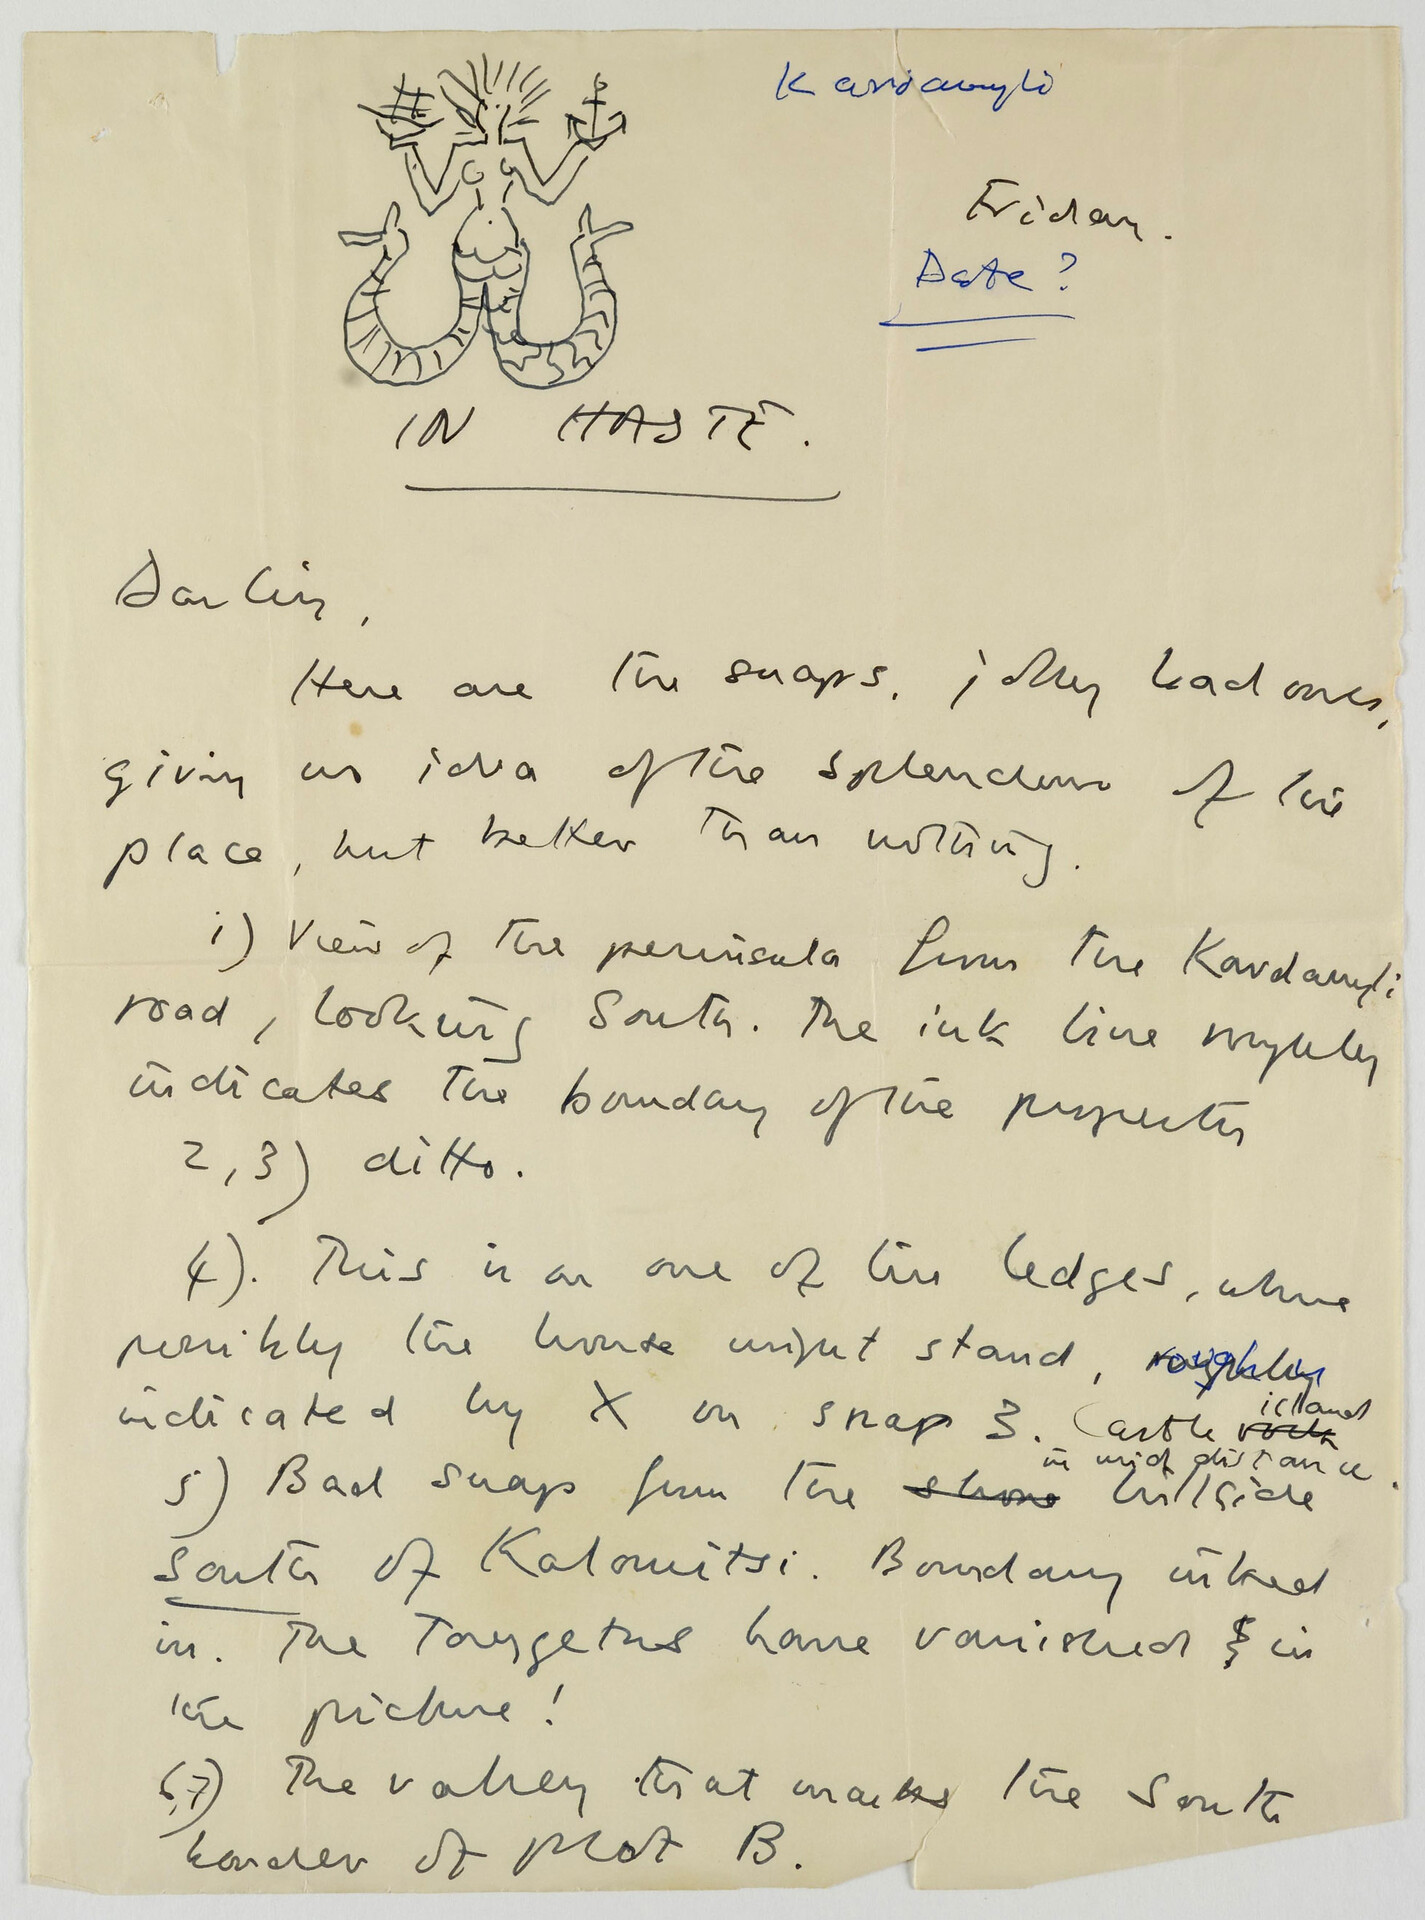 Kardamyli
Friday.
Date?
IN HASTE.
Darling,
Here are the snaps, jolly bad ones,
giving no idea of the splendour of the
place, but better than nothing.
1) View of the peninsula from the Kardamyli
road, looking South. The ink line roughly
indicates the boundary of the property
2,3) ditto.
4). This is on one of the ledges, where
possibly the house might stand, roughly
indicated by X on snap 3. Castle rock island
in mid distance.
5) Bad snap from the shore hillside
South of Kalamitsi. Boundary inked
in. The Taygetus have vanished & in
the picture!
6,7) The valley that marks the South
border of plot B.